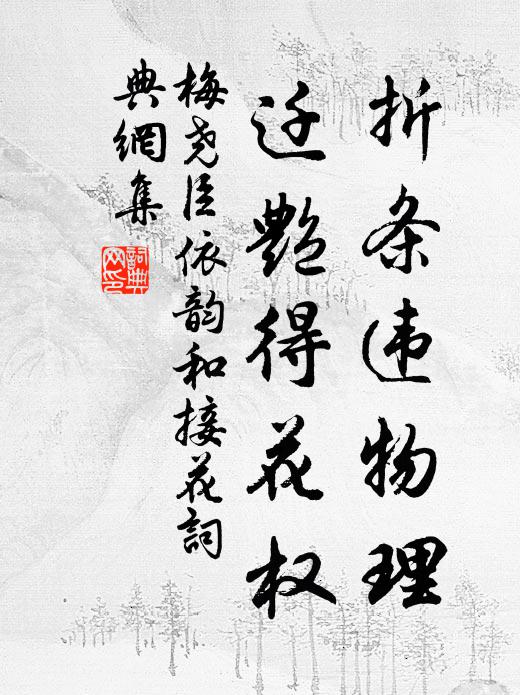 折条违物理
迁艳得花权
梅尧臣依韵和接花詞
典網集
詞典网